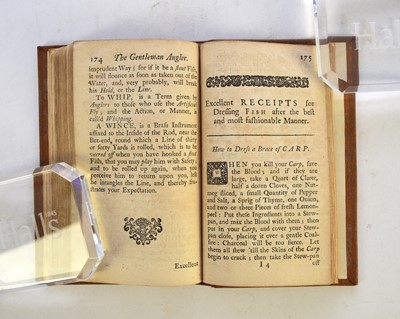 174 The Gentleman Angler.
imprudent Way; for if it be a stout Fish,
it will flounce as soon as taken out of the
Water, and, very probably, will break
his Hold, or the Line.
To WHIP, is a Term given by
Anglers to those who use the Artificial
Fly; and the Action, or Manner, is
called Whipping.
A WINCE, is a Brass Instrument
affixed to the Inside of the Rod, near the
But-end, round which a Line of thirty
or forty Yards is rolled, which is to be
veered off when you have hooked a stout
Fish, that you may play him with Safety;
and to be rolled up again, when you
perceive him to return upon you, lest
he intangles the Line, and thereby frus-
trates your Expectation.
Excellent
175
Excellent RECEIPTS for
Dressing FISH after the best
and most fashionable Manner.
How to Dress a Brace of CARP.
WHEN you kill your Carp, save
the Blood; and if they are
large, take a Quart of Claret,
half a dozen Cloves, one Nut-
meg sliced, a small Quantity of Pepper
and Salt, a Sprig of Thyme, one Onion,
and two or three Pieces of fresh Lemon-
peel: Put these Ingredients into a Stew-
pan, and mix the Blood with them; then
put in your Carp, and cover your Stew-
pan close, placing it over a gentle Coal-
fire: Charcoal will be too fierce. Let
them all stew 'till the Skins of the Carp
begin to crack; then take the Stew-pan
I 4 off
Halls
Hall